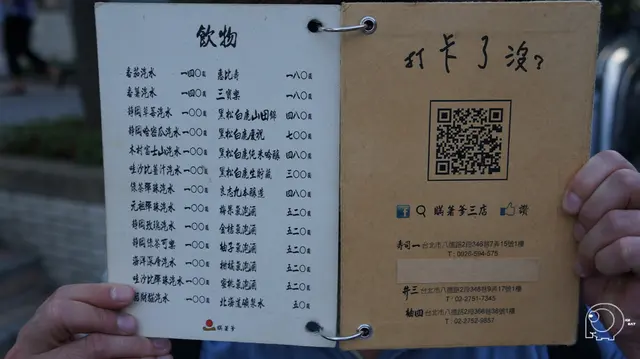 飲物
番茄汽水 一四〇元
番薑汽水 一四〇元
靜岡草莓汽水 一〇〇元
靜岡哈密瓜汽水 一〇〇元
木村富士山汽水 一〇〇元
哇沙比薑汁汽水 一〇〇元
綠茶彈珠汽水 一〇〇元
元祖彈珠汽水 一〇〇元
靜岡玫瑰汽水 一〇〇元
靜岡綠茶可樂 一〇〇元
海洋深層汽水 一〇〇元
哇沙比彈珠汽水 一〇〇元
招財貓汽水 一〇〇元
惠比壽 一八〇元
三寶樂 一八〇元
黑松白鹿山田錦 四八〇元
黑松白鹿慶祝 七〇〇元
黑松白鹿純米吟釀 四八〇元
黑松白鹿生貯藏 三〇〇元
京志九本釀造 四八〇元
梅果氣泡酒 五二〇元
金桔氣泡酒 五二〇元
柚子氣泡酒 五二〇元
柑橘氣泡酒 五二〇元
蜜桃氣泡酒 五二〇元
北海道礦泉水 五〇元
打卡了沒？
瞞著爹三店 讚
壽司一 台北市八德路2段346巷7弄15號1樓
井三 台北市八德路2段346巷9弄17號1樓
T: 02-2731-7345
軸四 台北市八德路2段366巷36號1樓
瞞著爹